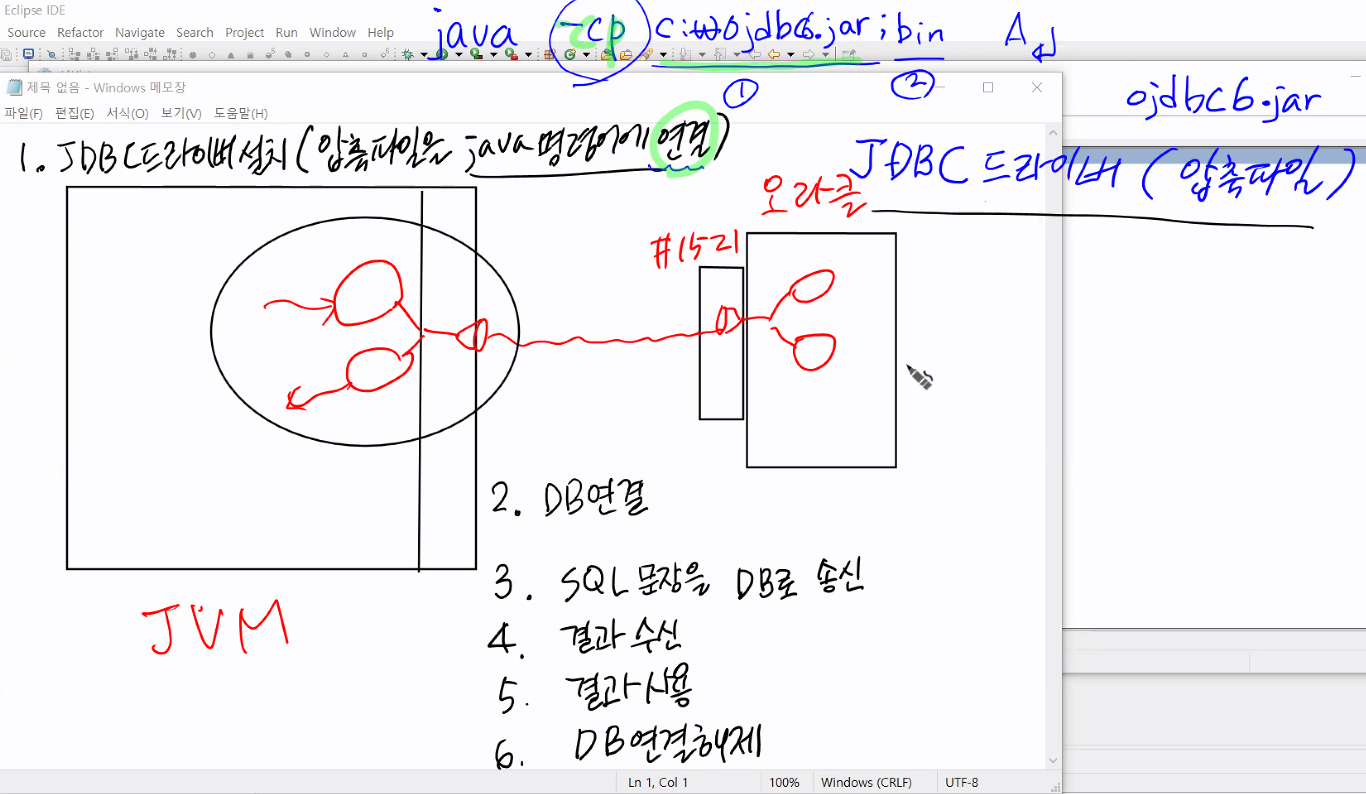 Eclipse IDE
Source Refactor Navigate Search Project Run Window Help
java -cp c:\ojdbc6.jar;bin A
① ②
제목 없음 - Windows 메모장
파일(F) 편집(E) 서식(O) 보기(V) 도움말(H)
ojdbc6.jar
1. JDBC드라이버설치(압축파일을 java명령어에 연결)
JDBC 드라이버 (압축파일)
오라클
#1521
2. DB연결
3. SQL 문장을 DB로 송신
JVM
4. 결과 수신
5. 결과사용
6. DB연결해제
Ln 1, Col 1 100% Windows (CRLF) UTF-8